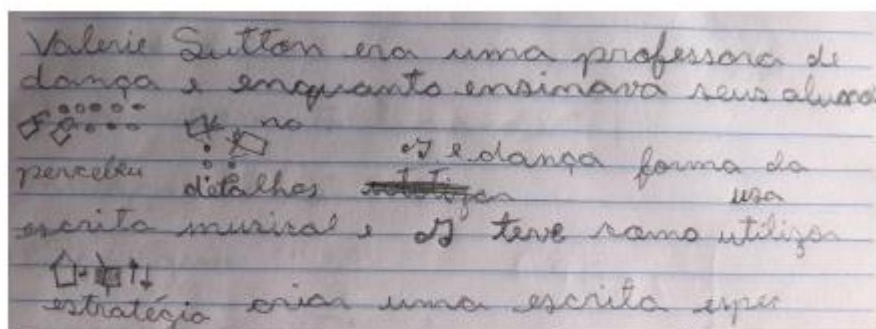 Valerie Sutton era uma professora de
dança e enquanto ensinava seus aluno
no
e dança forma da
percebeu detalhes usa
escrita musical e teve ramo utilizar
estratégia criar uma escrita espec